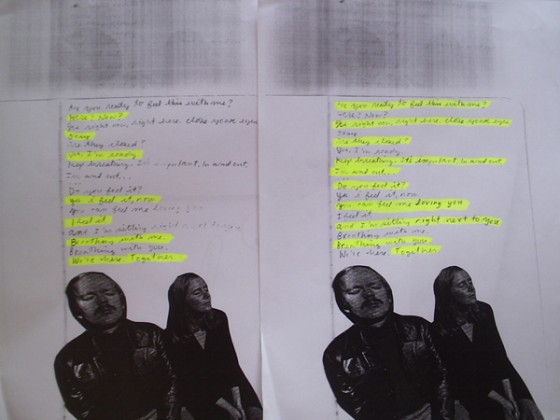 Are you ready to feel this with me?
Yes right now, right here. close your eyes
Okay.
Are they closed?
Yes, I'm ready
Keep breathing. It's important. In and out,
In and out...
Do you feel it?
Yes I feel it, now
You can feel me loving you
I feel it
and I'm sitting right next to you
Breathing with me.
Breathing with you.
We're here. Together
Are you ready to feel this with me?
Yes right now, right here. close your eyes
Okay.
Are they closed?
Yes, I'm ready
Keep breathing. It's important. In and out,
In and out...
Do you feel it?
Yes I feel it, now
You can feel me loving you
I feel it
and I'm sitting right next to you
Breathing with me.
Breathing with you.
We're here. Together